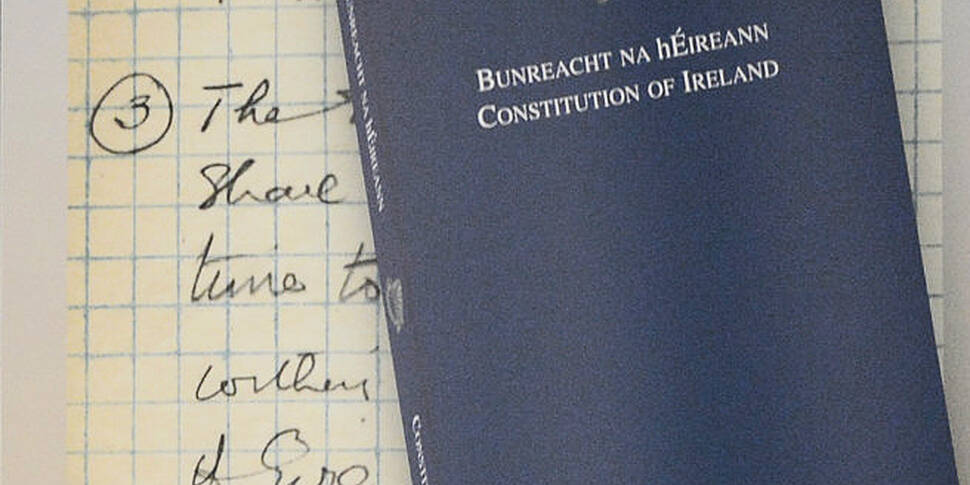 ③ The
Shall
time to
within
of Eire
BUNREACHT NA hÉIREANN
CONSTITUTION OF IRELAND
REACHT NA hÉIREANN
CONSTI